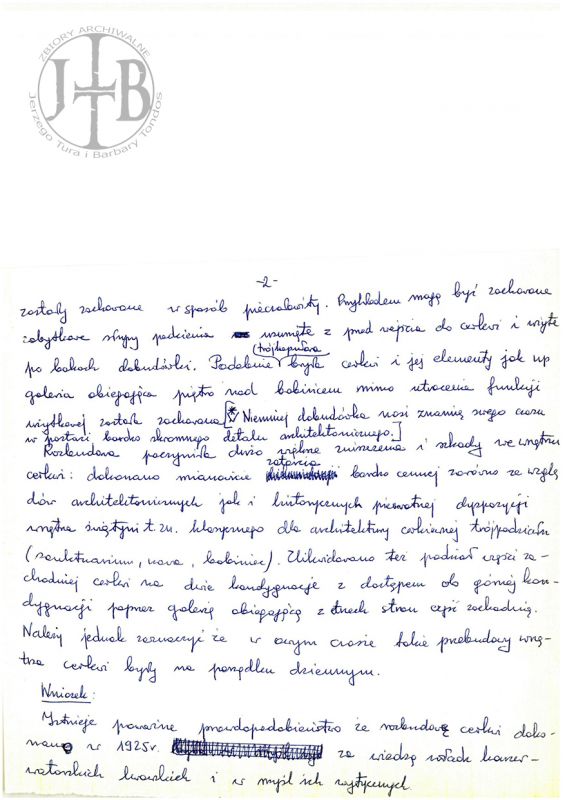 ZBIORY ARCHIWALNE
JTB
Jerzego Tura i Barbary Tondos
-2-
zostały zachowane w sposób pieczołowity. Przykładem mają być zachowane
zabytkowe słupy podcienia usunięte z przed wejścia do cerkwi i użyte
po bokach dobudówki. Podobnie trójkopułowa bryła cerkwi i jej elementy jak np
galeria obiegająca piętro nad babińcem mimo utracenia funkcji
użytkowej została zachowana [* Niemniej dobudówka nosi znamię swego czasu
w postaci bardzo skromnego detalu architektonicznego.]
Rozbudowa poczyniła duże zniszczenia i szkody we wnętrzu
cerkwi: dokonano mianowicie zatarcia bardzo cennej zarówno ze wzglę
dów architektonicznych jak i historycznych pierwotnej dyspozycji
wnętrza świątyni t.zn. klasycznego dla architektury cerkiewnej trójpodziału
(sanktuarium, nawa, babiniec). Zlikwidowano też podział części za-
chodniej cerkwi na dwie kondygnacje z dostępem do górnej kon-
dygnacji poprzez galerię obiegającą z trzech stron część zachodnią.
Należy jednak zaznaczyć że w owym czasie takie przebudowy wnę-
trza cerkwi były na porządku dziennym.
Wniosek:
Istnieje poważne prawdopodobieństwo że rozbudowę cerkwi doko-
nano w 1925r. za wiedzą władz konser-
watorskich lwowskich i w myśl ich wytycznych.